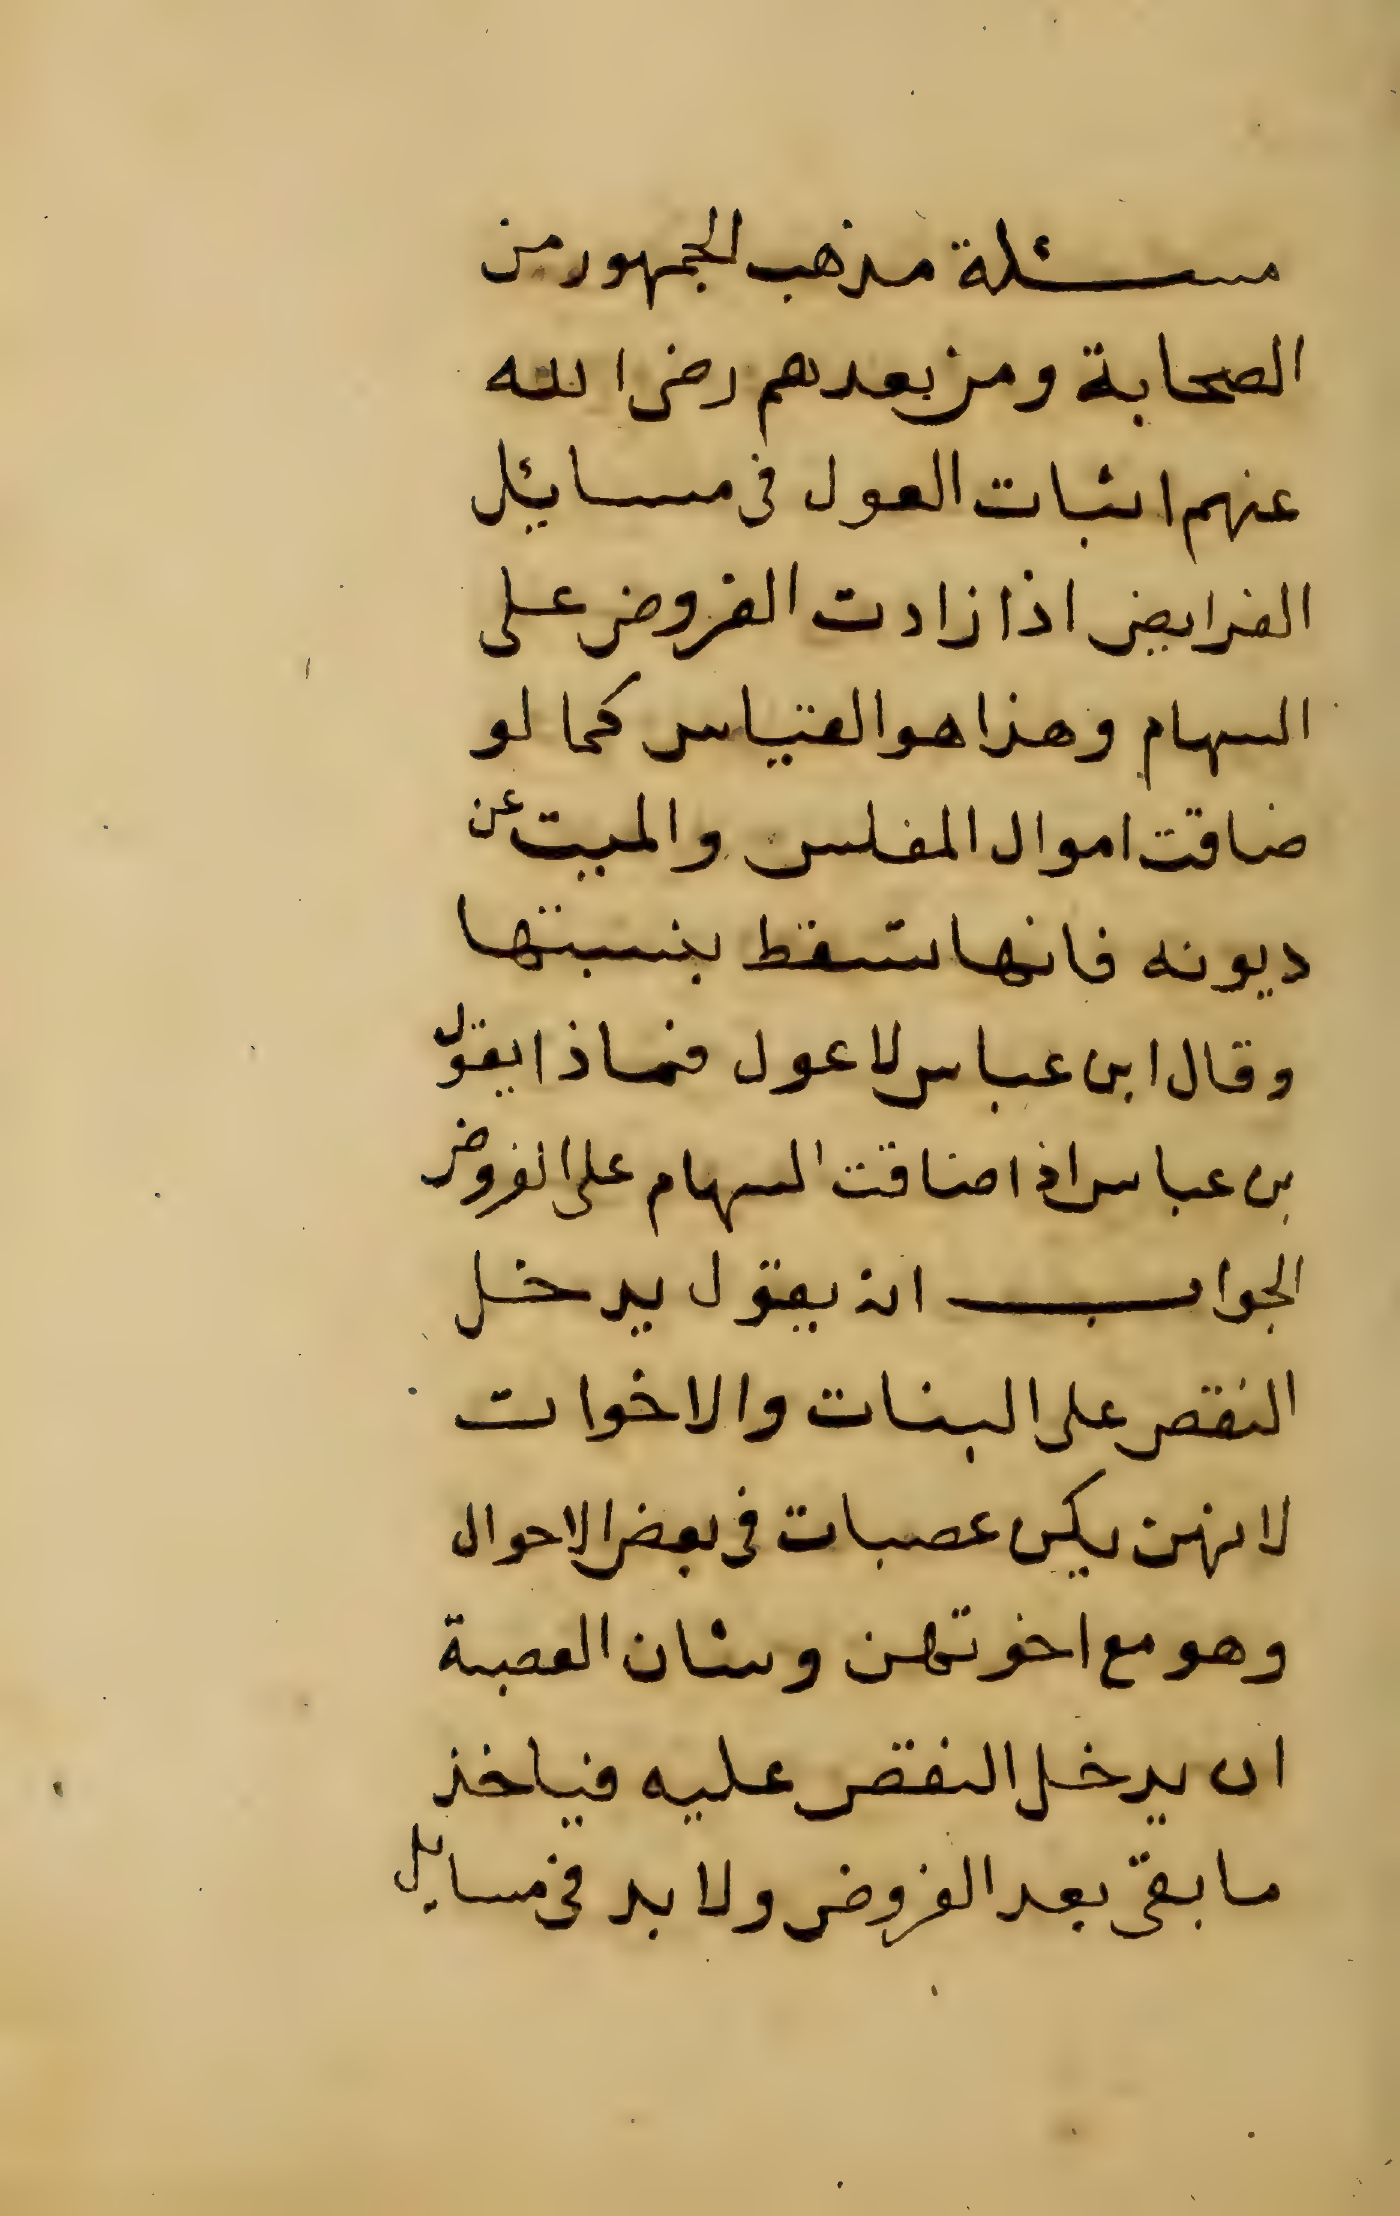 مسئلة مذهب الجمهور من
الصحابة ومن بعدهم رضى الله
عنهم اثبات العول فى مسايئل
الفرايض اذا زادت الفروض على
السهام وهذا هو القياس كما لو
ضاقت اموال المفلس والميت عن
ديونه فانها تسقط بنسبتها
وقال ابن عباس لا عول فماذا يقول
بن عباس اذا ضاقت السهام على الفروض
الجواب ان يقول يدخل
النقص على البنات والاخوات
لانهن يكن عصبات فى بعض الاحوال
وهو مع اخوتهن وشان العصبة
ان يدخل النقص عليه فياخذ
ما بقى بعد الفروض ولا بد فى مسايل